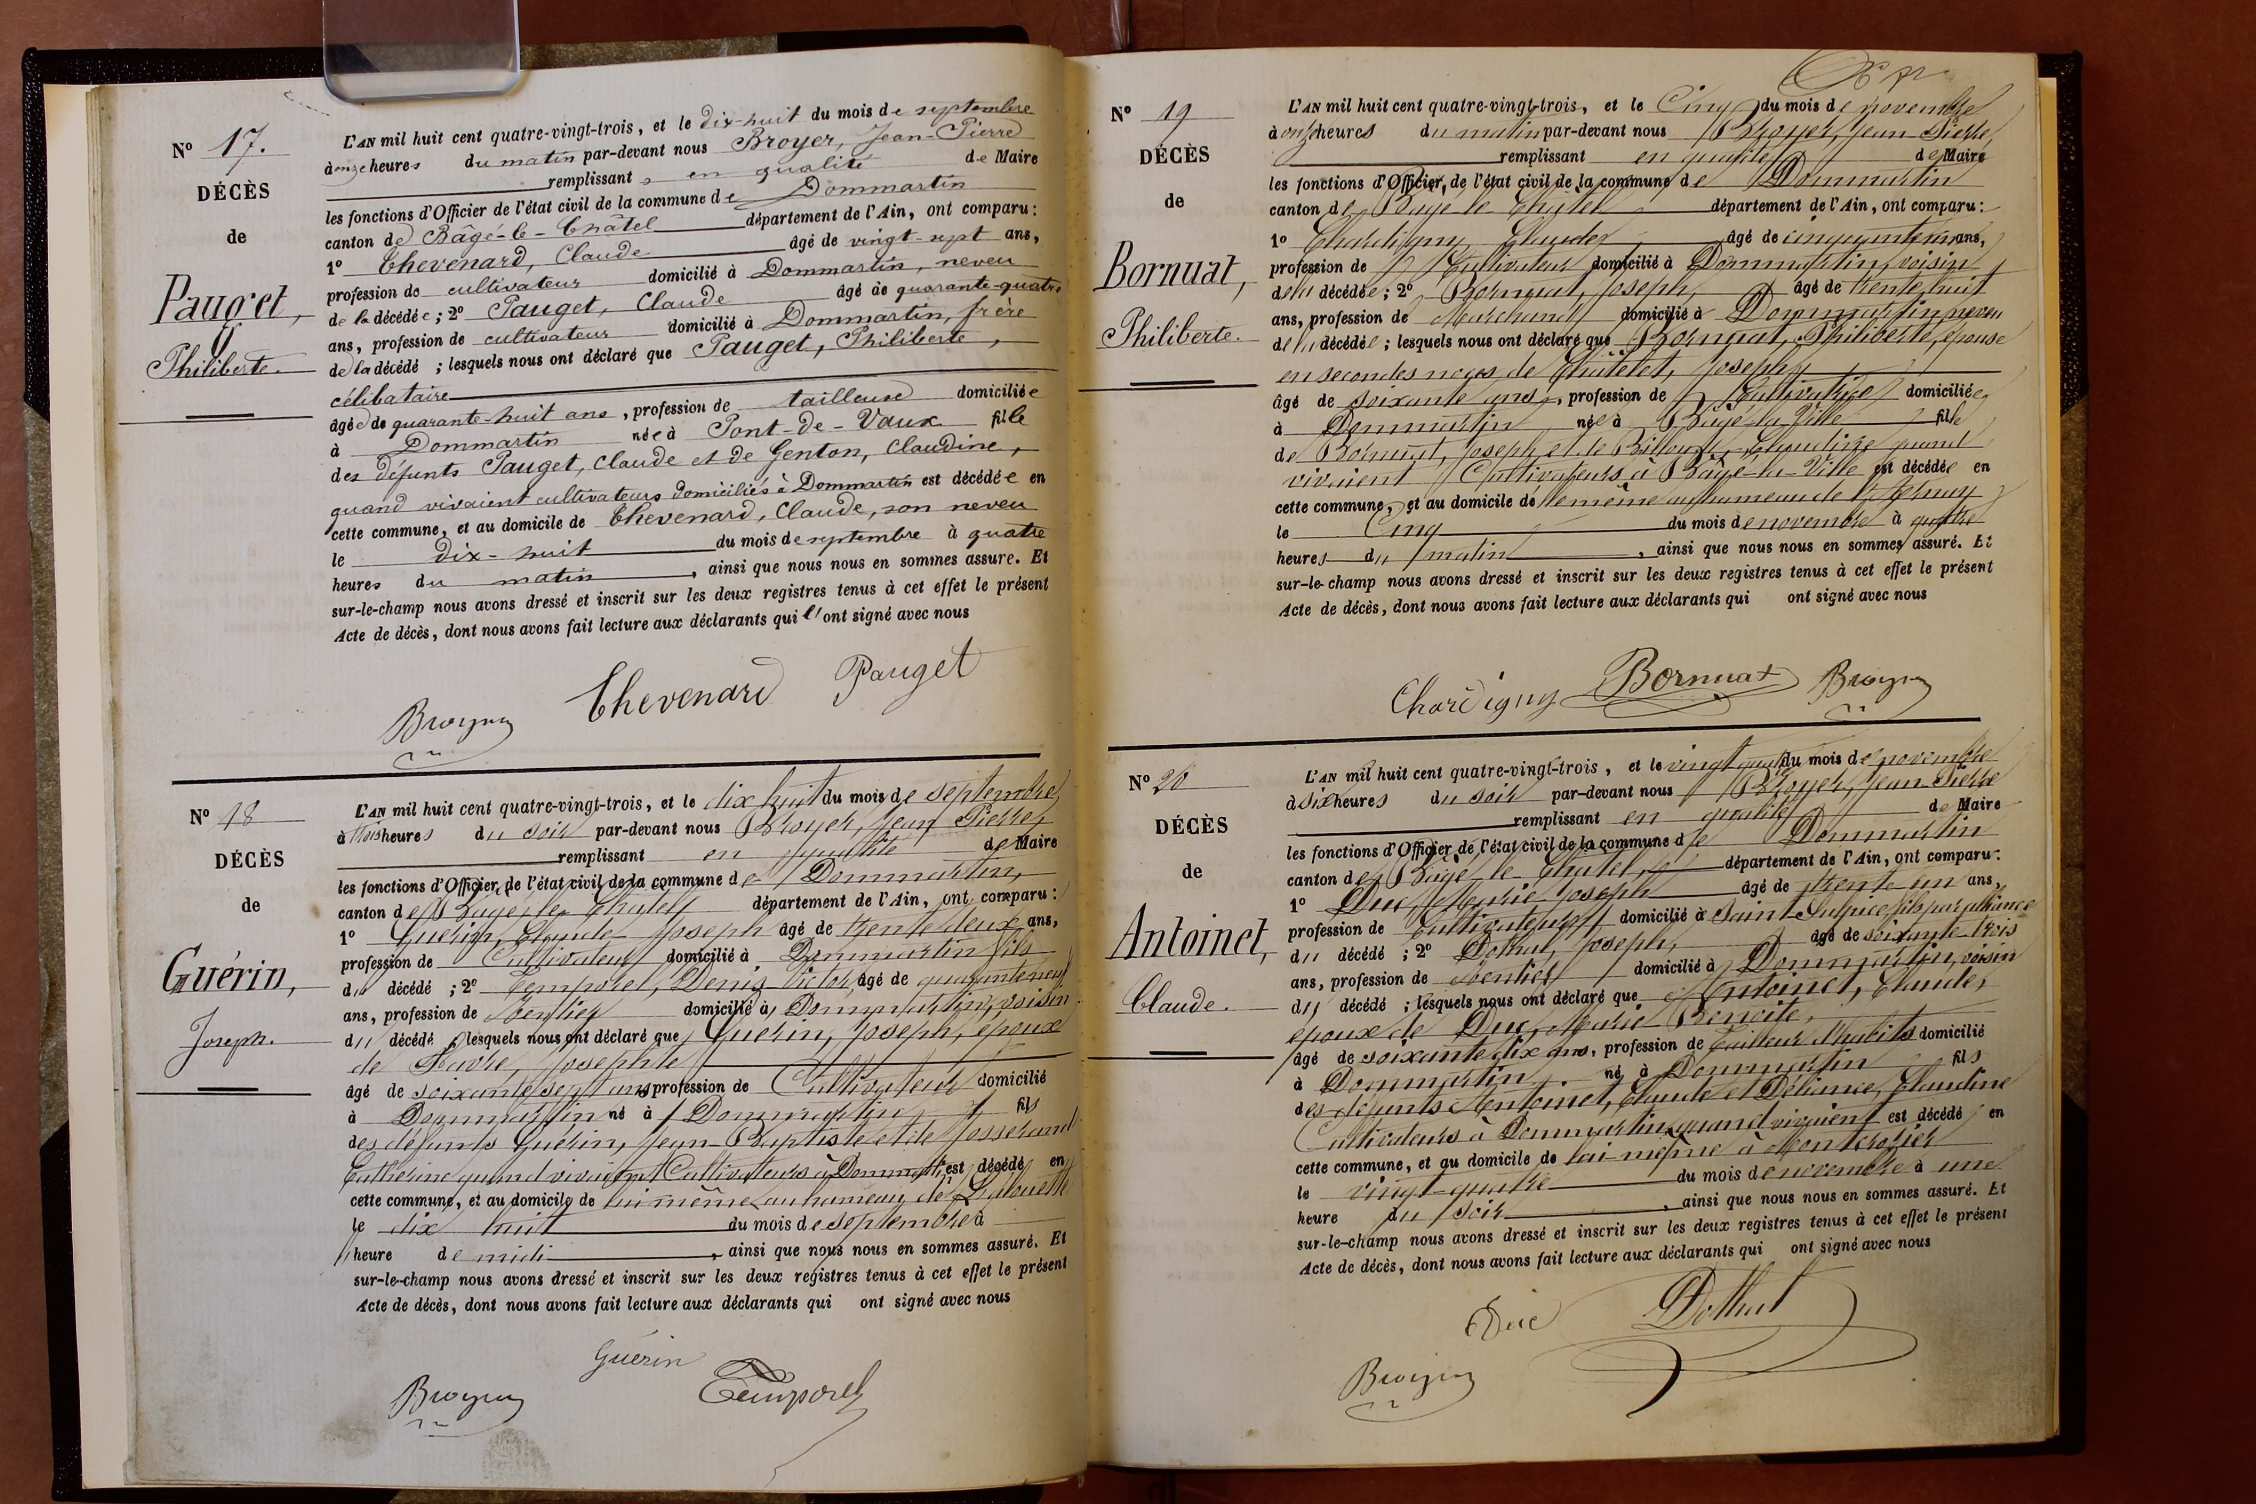 Nº 17.
DÉCÈS
de
Pauget,
Philiberte.
L'AN mil huit cent quatre-vingt-trois, et le dix-huit du mois de septembre
à onze heures du matin par-devant nous Broyer, Jean-Pierre
remplissant, en qualité de Maire
les fonctions d'Officier de l'état civil de la commune de Dommartin
canton de Bâgé-le-Châtel département de l'Ain, ont comparu:
1º Chevenard, Claude âgé de vingt-sept ans,
profession de cultivateur domicilié à Dommartin, neveu
de la décédée; 2º Pauget, Claude âgé de quarante-quatre
ans, profession de cultivateur domicilié à Dommartin, frère
de la décédé; lesquels nous ont déclaré que Pauget, Philiberte,
célibataire
âgée de quarante-huit ans, profession de tailleuse domiciliée
à Dommartin née à Pont-de-Vaux fille
des défunts Pauget, Claude et de Genton, Claudine,
quand vivaient cultivateurs domiciliés à Dommartin est décédée en
cette commune, et au domicile de Chevenard, Claude, son neveu
le dix-huit du mois de septembre à quatre
heures du matin, ainsi que nous nous en sommes assuré. Et
sur-le-champ nous avons dressé et inscrit sur les deux registres tenus à cet effet le présent
Acte de décès, dont nous avons fait lecture aux déclarants qui l'ont signé avec nous
Chevenard Pauget
Broyer
Nº 18
DÉCÈS
de
Guérin,
Joseph.
L'AN mil huit cent quatre-vingt-trois, et le dix huit du mois de septembre
à trois heures du soir par-devant nous Broyer, Jean Pierre
remplissant en qualité de Maire
les fonctions d'Officier de l'état civil de la commune de Dommartin,
canton de Bâgé-le-Châtel département de l'Ain, ont comparu:
1º Guérin, Claude Joseph âgé de trente deux ans,
profession de Cultivateur domicilié à Dommartin fils
du décédé; 2º Temporel, Denis Victor, âgé de quarante neuf
ans, profession de Rentier domicilié à Dommartin, voisin
du décédé lesquels nous ont déclaré que Guérin, Joseph, époux
de Favre, Josephte
âgé de soixante sept ans profession de Cultivateur domicilié
à Dommartin né à Dommartin fils
des défunts Guérin, Jean-Baptiste et de Josserand
Catherine quand vivaient Cultivateurs à Dommartin est décédé en
cette commune, et au domicile de lui même au hameau de
le dix huit du mois de septembre à
heure de midi, ainsi que nous nous en sommes assuré. Et
sur-le-champ nous avons dressé et inscrit sur les deux registres tenus à cet effet le présent
Acte de décès, dont nous avons fait lecture aux déclarants qui ont signé avec nous
Guérin
Broyer Temporel
Nº 19
DÉCÈS
de
Bornuat,
Philiberte.
L'AN mil huit cent quatre-vingt-trois, et le Cinq du mois de novembre
à onze heures du matin par-devant nous Broyer, Jean Pierre
remplissant en qualité de Maire
les fonctions d'Officier de l'état civil de la commune de Dommartin
canton de Bâgé-le-Châtel département de l'Ain, ont comparu:
1º Chardigny, Claude âgé de ans,
profession de Cultivateur domicilié à Dommartin, voisin
de la décédée; 2º Bornuat, Joseph, âgé de trente huit
ans, profession de Marchand domicilié à Dommartin neveu
de la décédée; lesquels nous ont déclaré que Bornuat, Philiberte, épouse
en secondes noces de Châtelet, Joseph
âgé de soixante ans, profession de Cultivatrice domiciliée
à Dommartin née à Bâgé-la-Ville fille
de Bornuat, Joseph et de Claudine quand
vivaient Cultivateurs à Bâgé-la-Ville est décédée en
cette commune, et au domicile de même au hameau de
le Cinq du mois de novembre à quatre
heures du matin, ainsi que nous nous en sommes assuré. Et
sur-le-champ nous avons dressé et inscrit sur les deux registres tenus à cet effet le présent
Acte de décès, dont nous avons fait lecture aux déclarants qui ont signé avec nous
Chardigny Bornuat Broyer
Nº 20
DÉCÈS
de
Antoinet,
Claude.
L'AN mil huit cent quatre-vingt-trois, et le vingt quatre du mois de novembre
à six heures du soir par-devant nous Broyer, Jean Pierre
remplissant en qualité de Maire
les fonctions d'Officier de l'état civil de la commune de Dommartin
canton de Bâgé-le-Châtel, département de l'Ain, ont comparu:
1º Duc, Marie Joseph âgé de trente un ans,
profession de Cultivateur domicilié à Saint Sulpice fils par alliance
du décédé; 2º Dothul, Joseph, âgé de soixante trois
ans, profession de Rentier domicilié à Dommartin, voisin
du décédé; lesquels nous ont déclaré que Antoinet, Claude,
époux de Duc, Marie Benoite,
âgé de soixante dix ans, profession de tailleur d'habits domicilié
à Dommartin né à Dommartin fils
des défunts Antoinet, Claude et Claudine
Cultivateurs à Dommartin quand vivaient est décédé en
cette commune, et au domicile de lui-même à Montcrozier
le vingt-quatre du mois de novembre à une
heure du soir, ainsi que nous nous en sommes assuré. Et
sur-le-champ nous avons dressé et inscrit sur les deux registres tenus à cet effet le présent
Acte de décès, dont nous avons fait lecture aux déclarants qui ont signé avec nous
Duc Dothul
Broyer